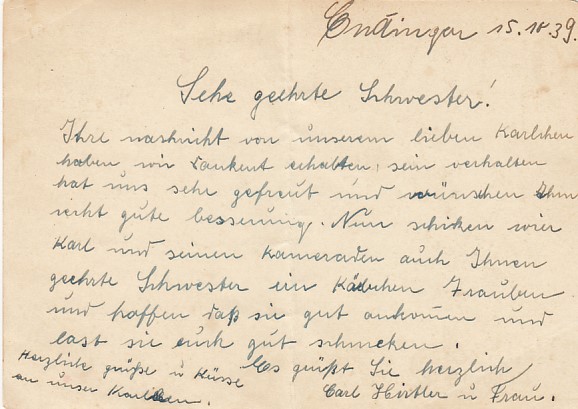 Endingen 15.10.39.
Sehr geehrte Schwester!
Ihre nachricht von unserem lieben Karlchen
haben wir dankent erhalten, sein verhalten
hat uns sehr gefreut und wünschen Ihm
recht gute besserung. Nun schicken wier
Karl und seinen Kameraden auch Ihnen
geehrte Schwester ein Käbchen Trauben
und hoffen daß sie gut ankomen und
last sie euch gut schmeken.
Es grüßt Sie herzlich
Carl Hirtler u Frau.
Herzliche grüße u Küsse
an unser Karlchen.